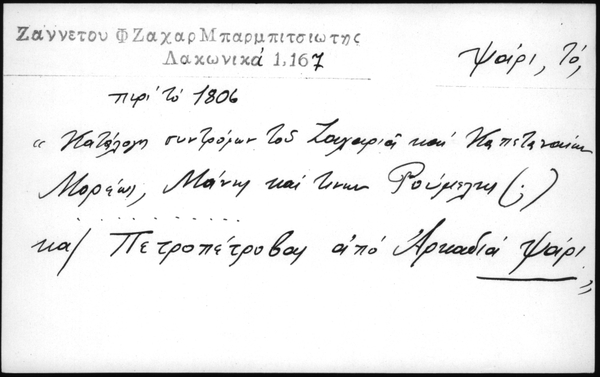 Ζαννετου Φ Ζαχαρ Μπαρμπιτσιωτης
Λακωνικά 1,167
Ψάρι, τό,
περί τό 1806
« Κατάλογος συντρόφων τοῦ Ζαχαριᾶ καί Καπεταναίων
Μορέως, Μάνης καί τινων Ρούμελης (;)
. . . . . . . . . . .
κα/ Πετροπέτροβας ἀπό Ἀρκαδιά Ψάρι »